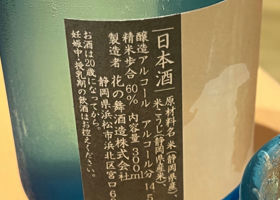 日本酒
原材料名 米(静岡県産)、
米こうじ(静岡県産米)、
醸造アルコール アルコール分
精米歩合 60% 内容量 300ml
製造者 花の舞酒造株式会社
静岡県浜松市浜北区宮口6
お酒は20歳になってから。
妊娠中・授乳期の飲酒はお控えください。